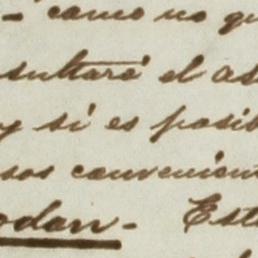 - como no qu
sultaré el as
y si es posib
sos convenien
odan - Esta